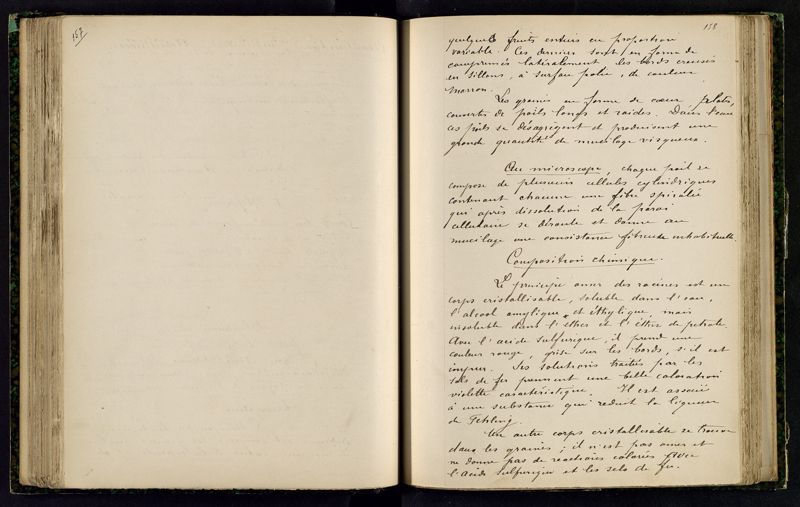 157
158
quelques fruits entiers en proportion
variable. Ces derniers sont en forme de
comprimés latéralement les bords creusés
en sillons, à surface polie, de couleur
marron.
Les graines en forme de cœur plates,
couvertes de poils longs et raides. Dans l'eau
ces poils se désagrègent et produisent une
grande quantité de mucilage visqueux.
Au microscope, chaque poil se
compose de plusieurs cellules cylindriques
contenant chacune une fibre spiralée
qui après dissolution de la paroi
cellulaire se déroule et donne au
mucilage une consistance fibreuse inhabituelle.
Composition chimique.
Le principe amer des racines est un
corps cristallisable, soluble dans l'eau,
l'alcool amylique et éthylique, mais
insoluble dans l'éther et l'éther de pétrole.
Avec l'acide sulfurique, il prend une
couleur rouge, grise sur les bords, s'il est
impur. Ses solutions traitées par les
sels de fer prennent une belle coloration
violette caractéristique. Il est associé
à une substance qui réduit la liqueur
de Fehling.
Un autre corps cristallisable se trouve
dans les graines ; il n'est pas amer et
ne donne pas de réactions colorées avec
l'acide sulfurique et les sels de fer.